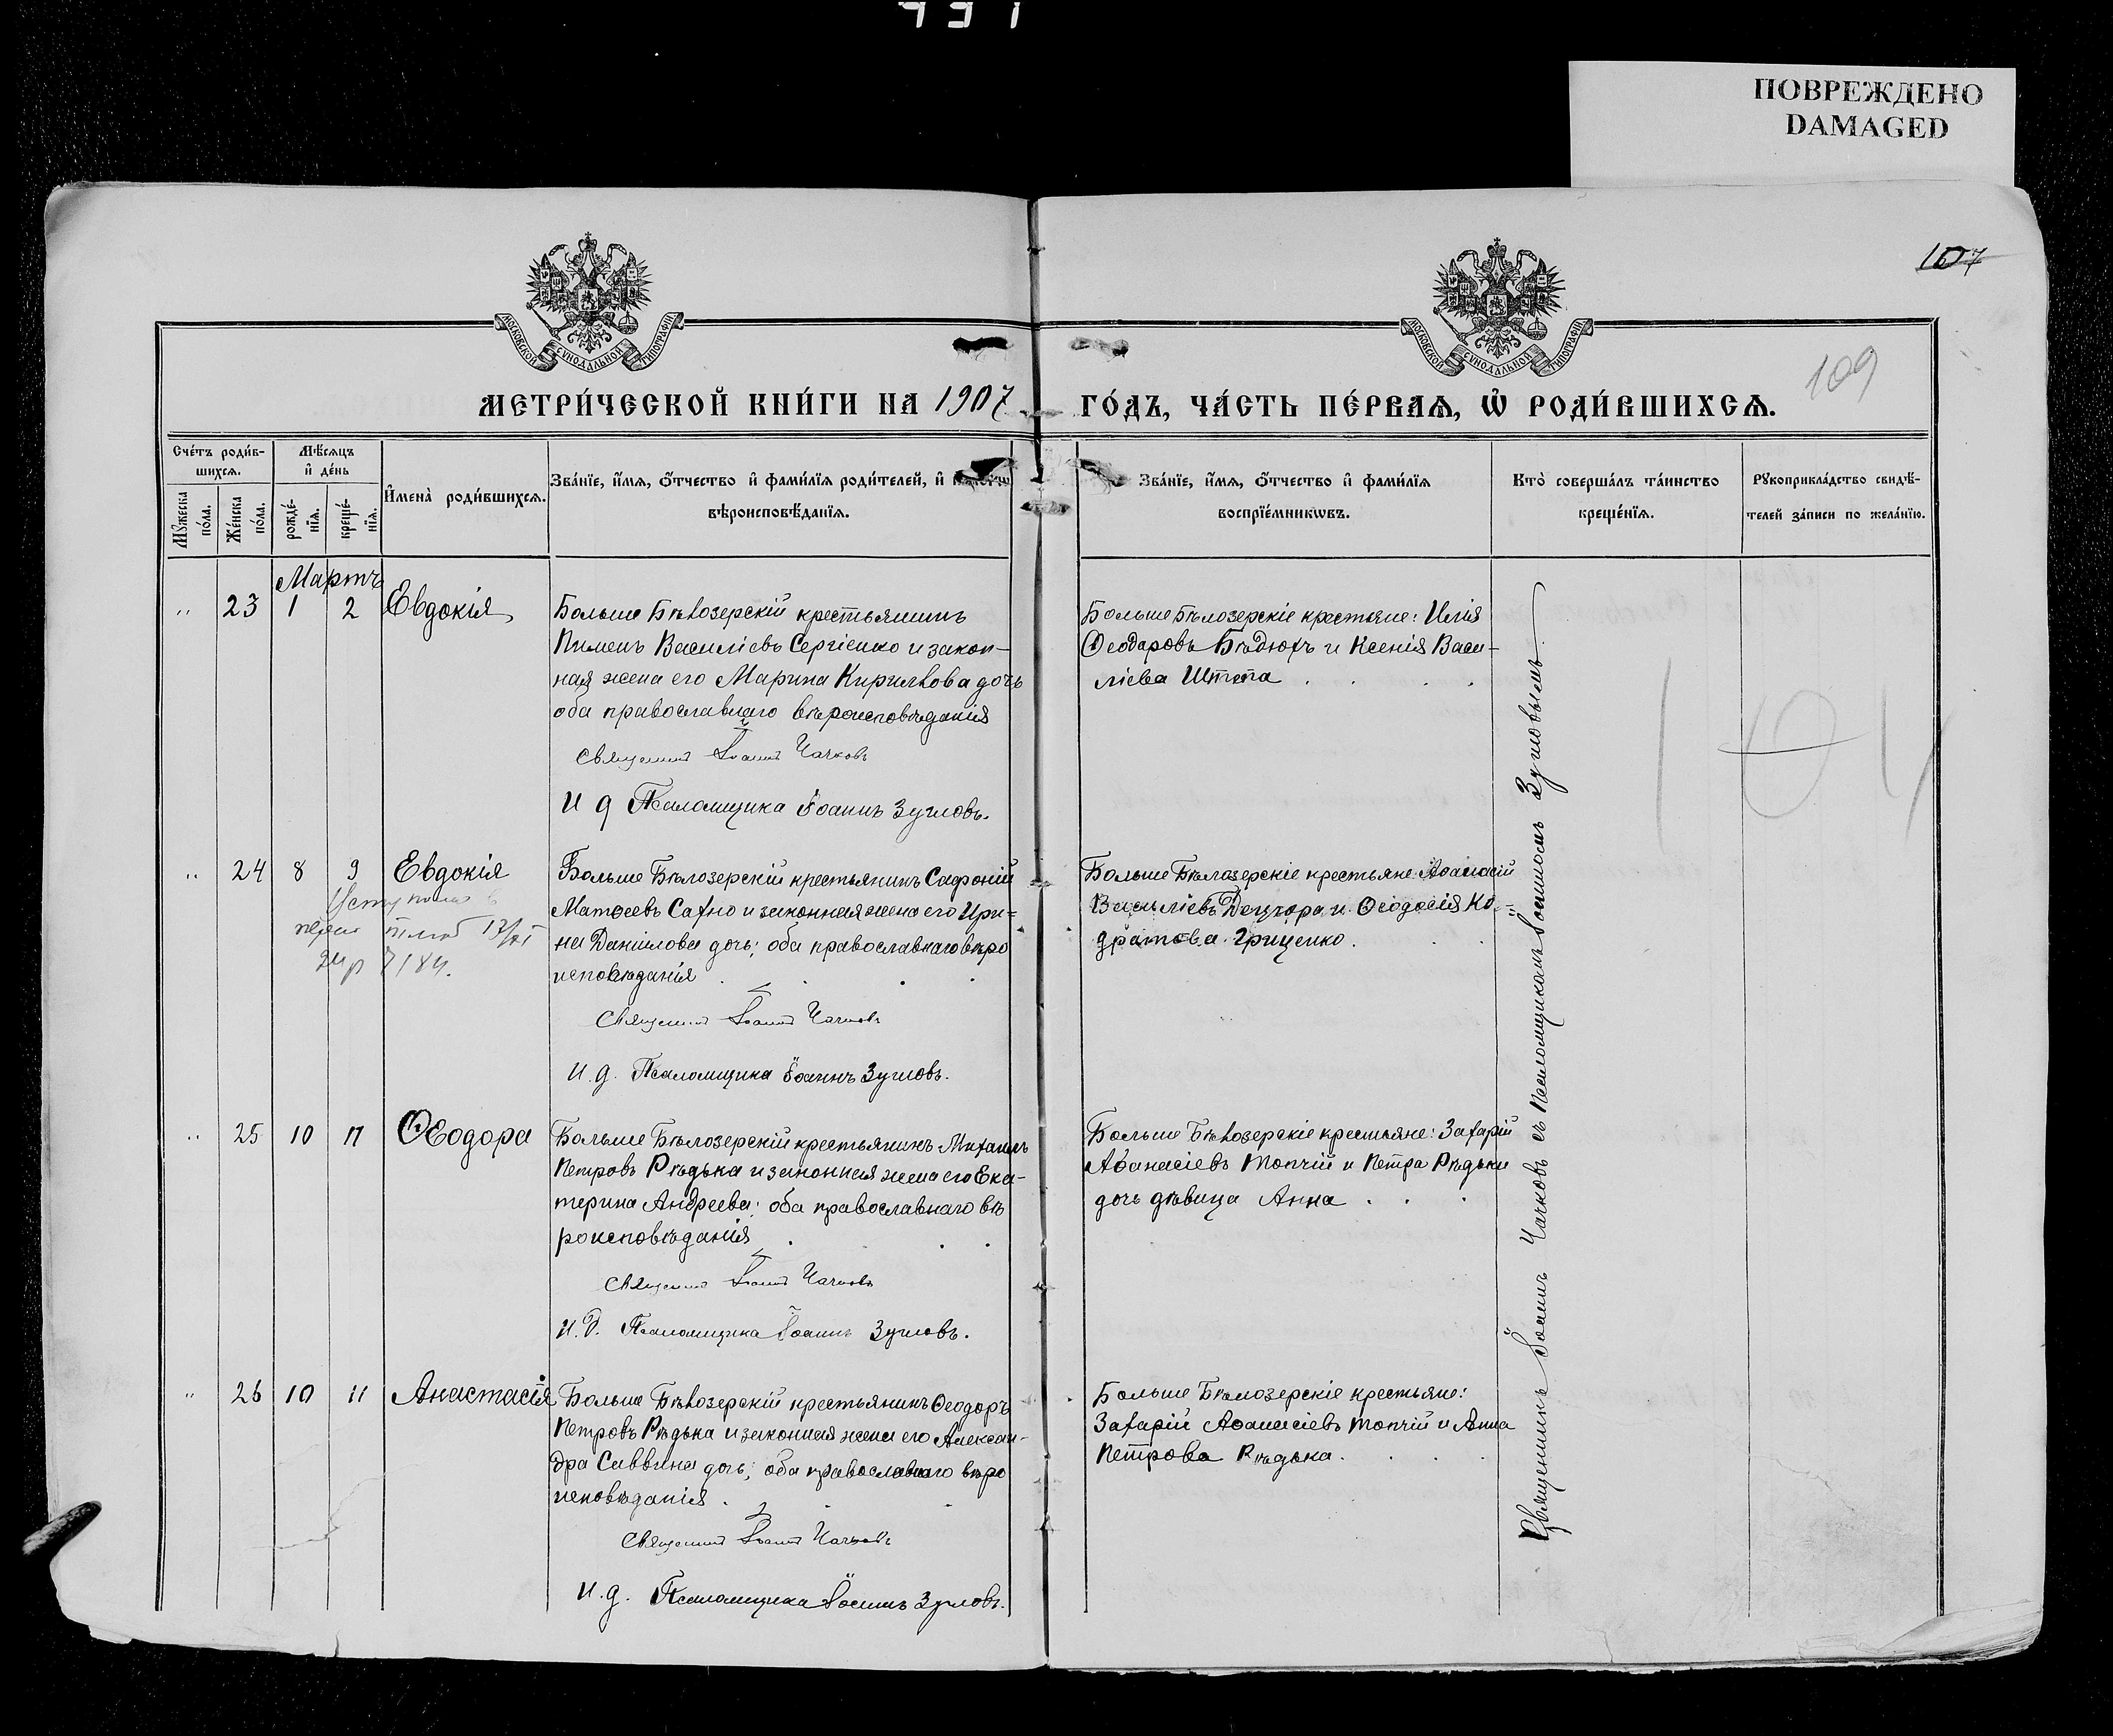 ПОВРЕЖДЕНО
DAMAGED
107
109
МОСКОВСКОЙ СѴНОДАЛЬНОЙ ТИПОГРАФІИ
МОСКОВСКОЙ СѴНОДАЛЬНОЙ ТИПОГРАФІИ
МЕТРИ́ЧЕСКОЙ КНИ́ГИ НА 1907 ГО́ДЪ, ЧА́СТЬ ПЕ́РВАѦ, Ѡ҆ РОДИ́ВШИХСѦ.
Сче́тъ роди́в-
шихсѧ.
Мꙋ́жеска по́ла.
Же́нска по́ла.
Мѣ́сѧцъ и҆ де́нь
рожде́-
нїѧ.
креще́-
нїѧ.
И҆мена̀ роди́вшихсѧ.
Зва́нїе, и҆́мѧ, ѻ҆́тчество и҆ фами́лїѧ роди́телей, и҆
вѣроисповѣ́данїѧ.
Зва́нїе, и҆́мѧ, ѻ҆́тчество и҆ фами́лїѧ
воспрїе́мникѡвъ.
Кто̀ соверша́лъ та́инство
креще́нїѧ.
Рꙋкоприкла́дство свидѣ́-
телей за́писи по жела́нїю.
Мартъ
" 23 1 2 Евдокія
Больше Бѣлозерскій крестьянинъ
Пименъ Василіевъ Сергіенко и закон-
ная жена его Марина Кирилова дочь
оба православнаго вѣроисповѣданія
Священникъ Іоаннъ Чачковъ
И д Псаломщика Іоаннъ Зугловъ.
Больше Бѣлозерскіе крестьяне: Илія
Ѳеодоровъ Бѣдюхъ и Ксенія Васи-
ліева Штепа
" 24 8 9 Евдокія
Больше Бѣлозерскій крестьянинъ Сафоній
Матѳеевъ Сахно и законная жена его Ири-
на Даніилова дочь; оба православнаго вѣро
исповѣданія
Священникъ Іоаннъ Чачковъ
И.д. Псаломщика Іоаннъ Зугловъ.
Больше Бѣлозерскіе крестьяне Аѳанасій
Василіевъ и Ѳеодосія Ко-
дратова Гриценко.
" 25 10 11 Ѳеодора
Больше Бѣлозерскій крестьянинъ Михаилъ
Петровъ Рѣдька и законная жена его Ека-
терина Андреева; оба православнаго вѣ
роисповѣданія
Священникъ Іоаннъ Чачковъ
И.д. Псаломщика Іоаннъ Зугловъ.
Больше Бѣлозерскіе крестьяне: Захарій
Аѳанасіевъ Топчій и Петра Рѣдьки
дочь дѣвица Анна
" 26 10 11 Анастасія
Больше Бѣлозерскій крестьянинъ Ѳеодоръ
Петровъ Рѣдька и законная жена его Алексан-
дра Саввина дочь; оба православнаго вѣро
исповѣданія
Священникъ Іоаннъ Чачковъ
И.д. Псаломщика Іоаннъ Зугловъ.
Больше Бѣлозерскіе крестьяне:
Захарій Аѳанасіевъ Топчій и Анна
Петрова Рѣдька.
Священникъ Іоаннъ Чачковъ съ Псаломщикомъ Іоанномъ Зугловымъ